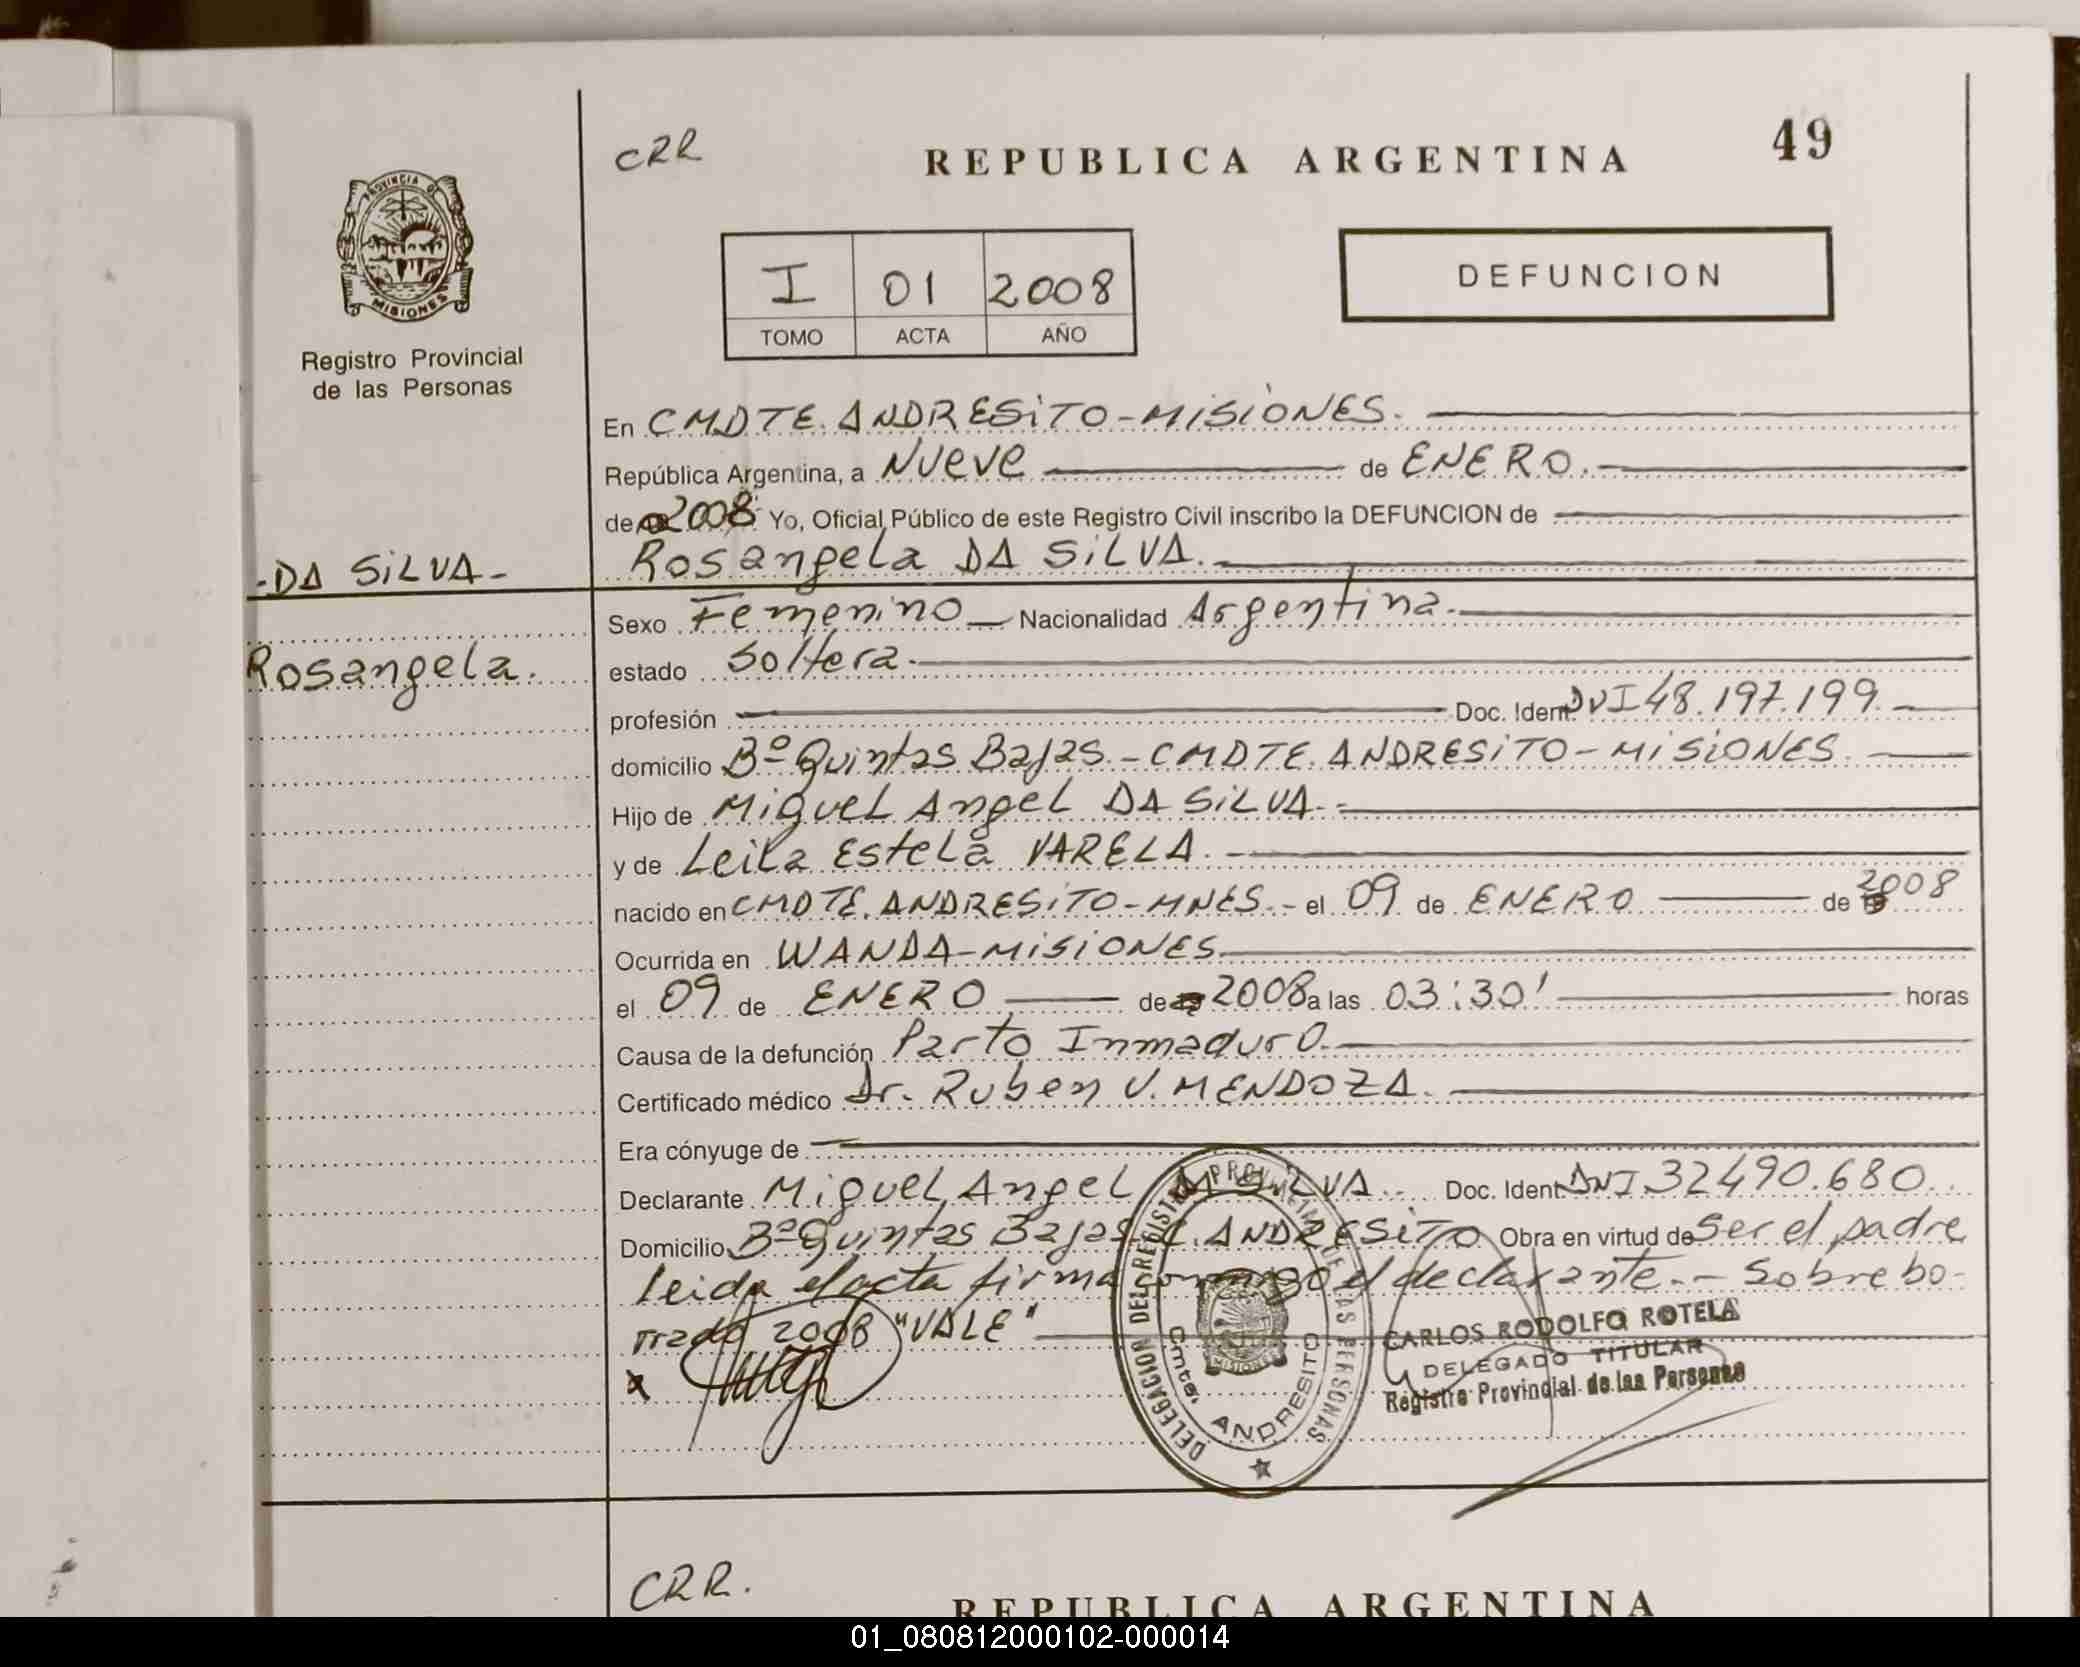 CRR
REPUBLICA ARGENTINA
49
PROVINCIA DE
MISIONES
Registro Provincial
de las Personas
I 01 2008
TOMO ACTA AÑO
DEFUNCION
En CMDTE. ANDRESiTO-MiSiONES.
República Argentina, a NUEVE de ENERO.
de 2008 Yo, Oficial Público de este Registro Civil inscribo la DEFUNCION de
-DA SiLVA-
Rosangela DA SiLVA.
Rosangela.
Sexo Femenino Nacionalidad Argentina.
estado Soltera.
profesión Doc. Ident. DNI 48.197.199.
domicilio Bº Quintas Bajas.-CMDTE. ANDRESiTO-MiSiONES.
Hijo de Miguel Angel DA SiLVA.-
y de Leila Estela VARELA.-
nacido en CMDTE. ANDRESiTO-MNES.- el 09 de ENERO de 2008
Ocurrida en WANDA-MiSiONES
el 09 de ENERO de 2008 a las 03:30' horas
Causa de la defunción Parto Inmaduro.
Certificado médico Dr. Ruben V. MENDOZA.
Era cónyuge de
Declarante Miguel Angel DA SiLVA. Doc. Ident. DNI 32490.680
Domicilio Bº Quintas Bajas C. ANDRESiTO Obra en virtud de Ser el padre
leida el acta firma conmigo el declarante.- Sobrebo-
rrado 2008 "VALE"
x
DELEGACION DEL REGISTRO PROVINCIAL DE LAS PERSONAS
Cmte. ANDRESITO
MISIONES
CARLOS RODOLFO ROTELA
DELEGADO TITULAR
Registro Provincial de las Personas
CRR.
REPUBLICA ARGENTINA
01_080812000102-000014